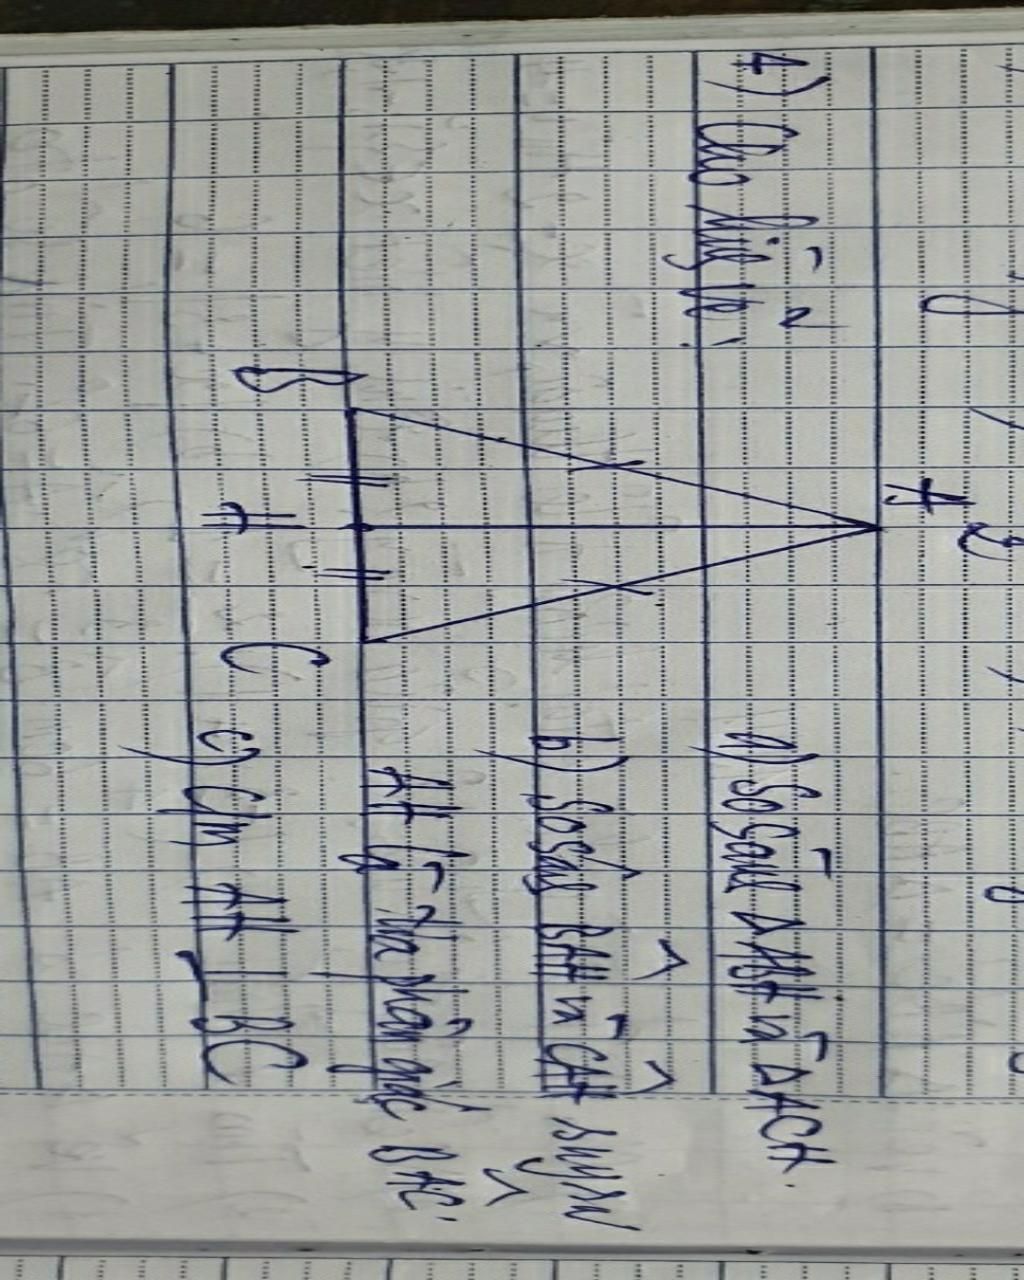 4) Cho hình vẽ:
A
B
H
C
a) So sánh ΔABH và ΔACH.
b) So sánh BAH và CAH suy ra
AH là tia phân giác BAC.
c) Cm AH ⊥ BC